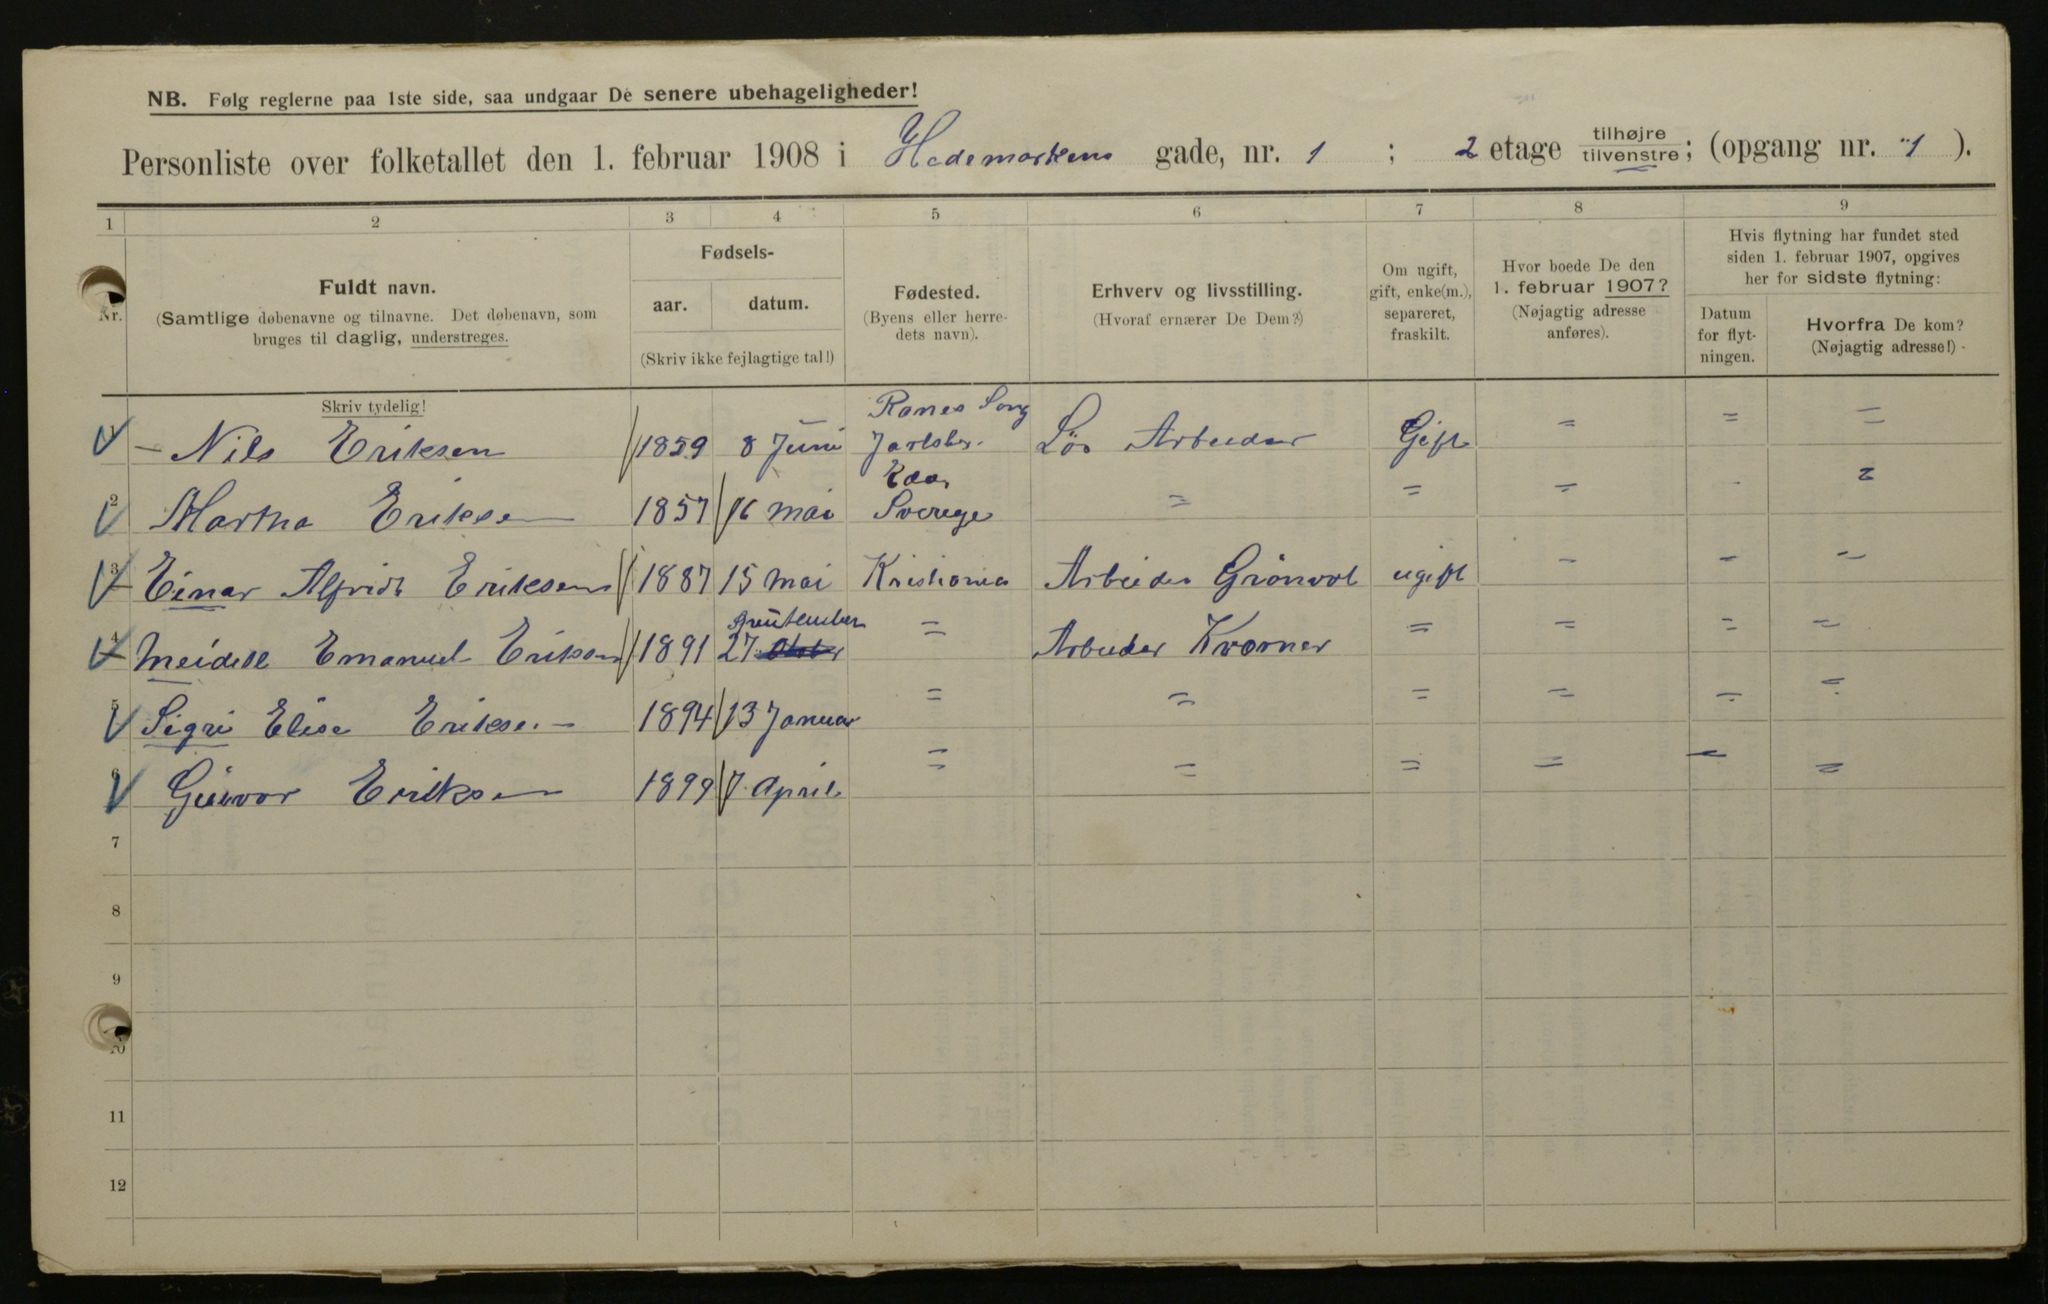 NB. Følg reglerne paa 1ste side, saa undgaar De senere ubehageligheder!
Personliste over folketallet den 1. februar 1908 i Hedemarkens gade, nr. 1 ; 2 etage tilhøjre tilvenstre; (opgang nr. "1 ).
1 2 3 4 5 6 7 8 9
Nr.
Fuldt navn.
(Samtlige døbenavne og tilnavne. Det døbenavn, som
bruges til daglig, understreges.
Skriv tydelig!
Fødsels-
aar. datum.
(Skriv ikke fejlagtige tal!)
Fødested.
(Byens eller herre-
dets navn).
Erhverv og livsstilling.
(Hvoraf ernærer De Dem?)
Om ugift,
gift, enke(m.),
separeret,
fraskilt.
Hvor boede De den
1. februar 1907?
(Nøjagtig adresse
anføres).
Hvis flytning har fundet sted
siden 1. februar 1907, opgives
her for sidste flytning:
Datum
for flyt-
ningen.
Hvorfra De kom?
(Nøjagtig adresse!)
Nils Eriksen 1859 8 Juni Jarlsber. Løs Arbeider Gift = = =
2 Martha Eriksen 1857 16 mai Sverige = = =
3 Einar Alfridt Eriksen 1887 15 mai Kristiania Arbeider Grönvol ugift = = =
4 Meidell Emanuel Eriksen 1891 27 = Arbeder Kværner = = = =
5 Sigri Elise Eriksen 1894 13 Januar = = = = = =
6 Gunvor Eriksen 1899 7 April = = = = = =
7
8
9
10
11
12